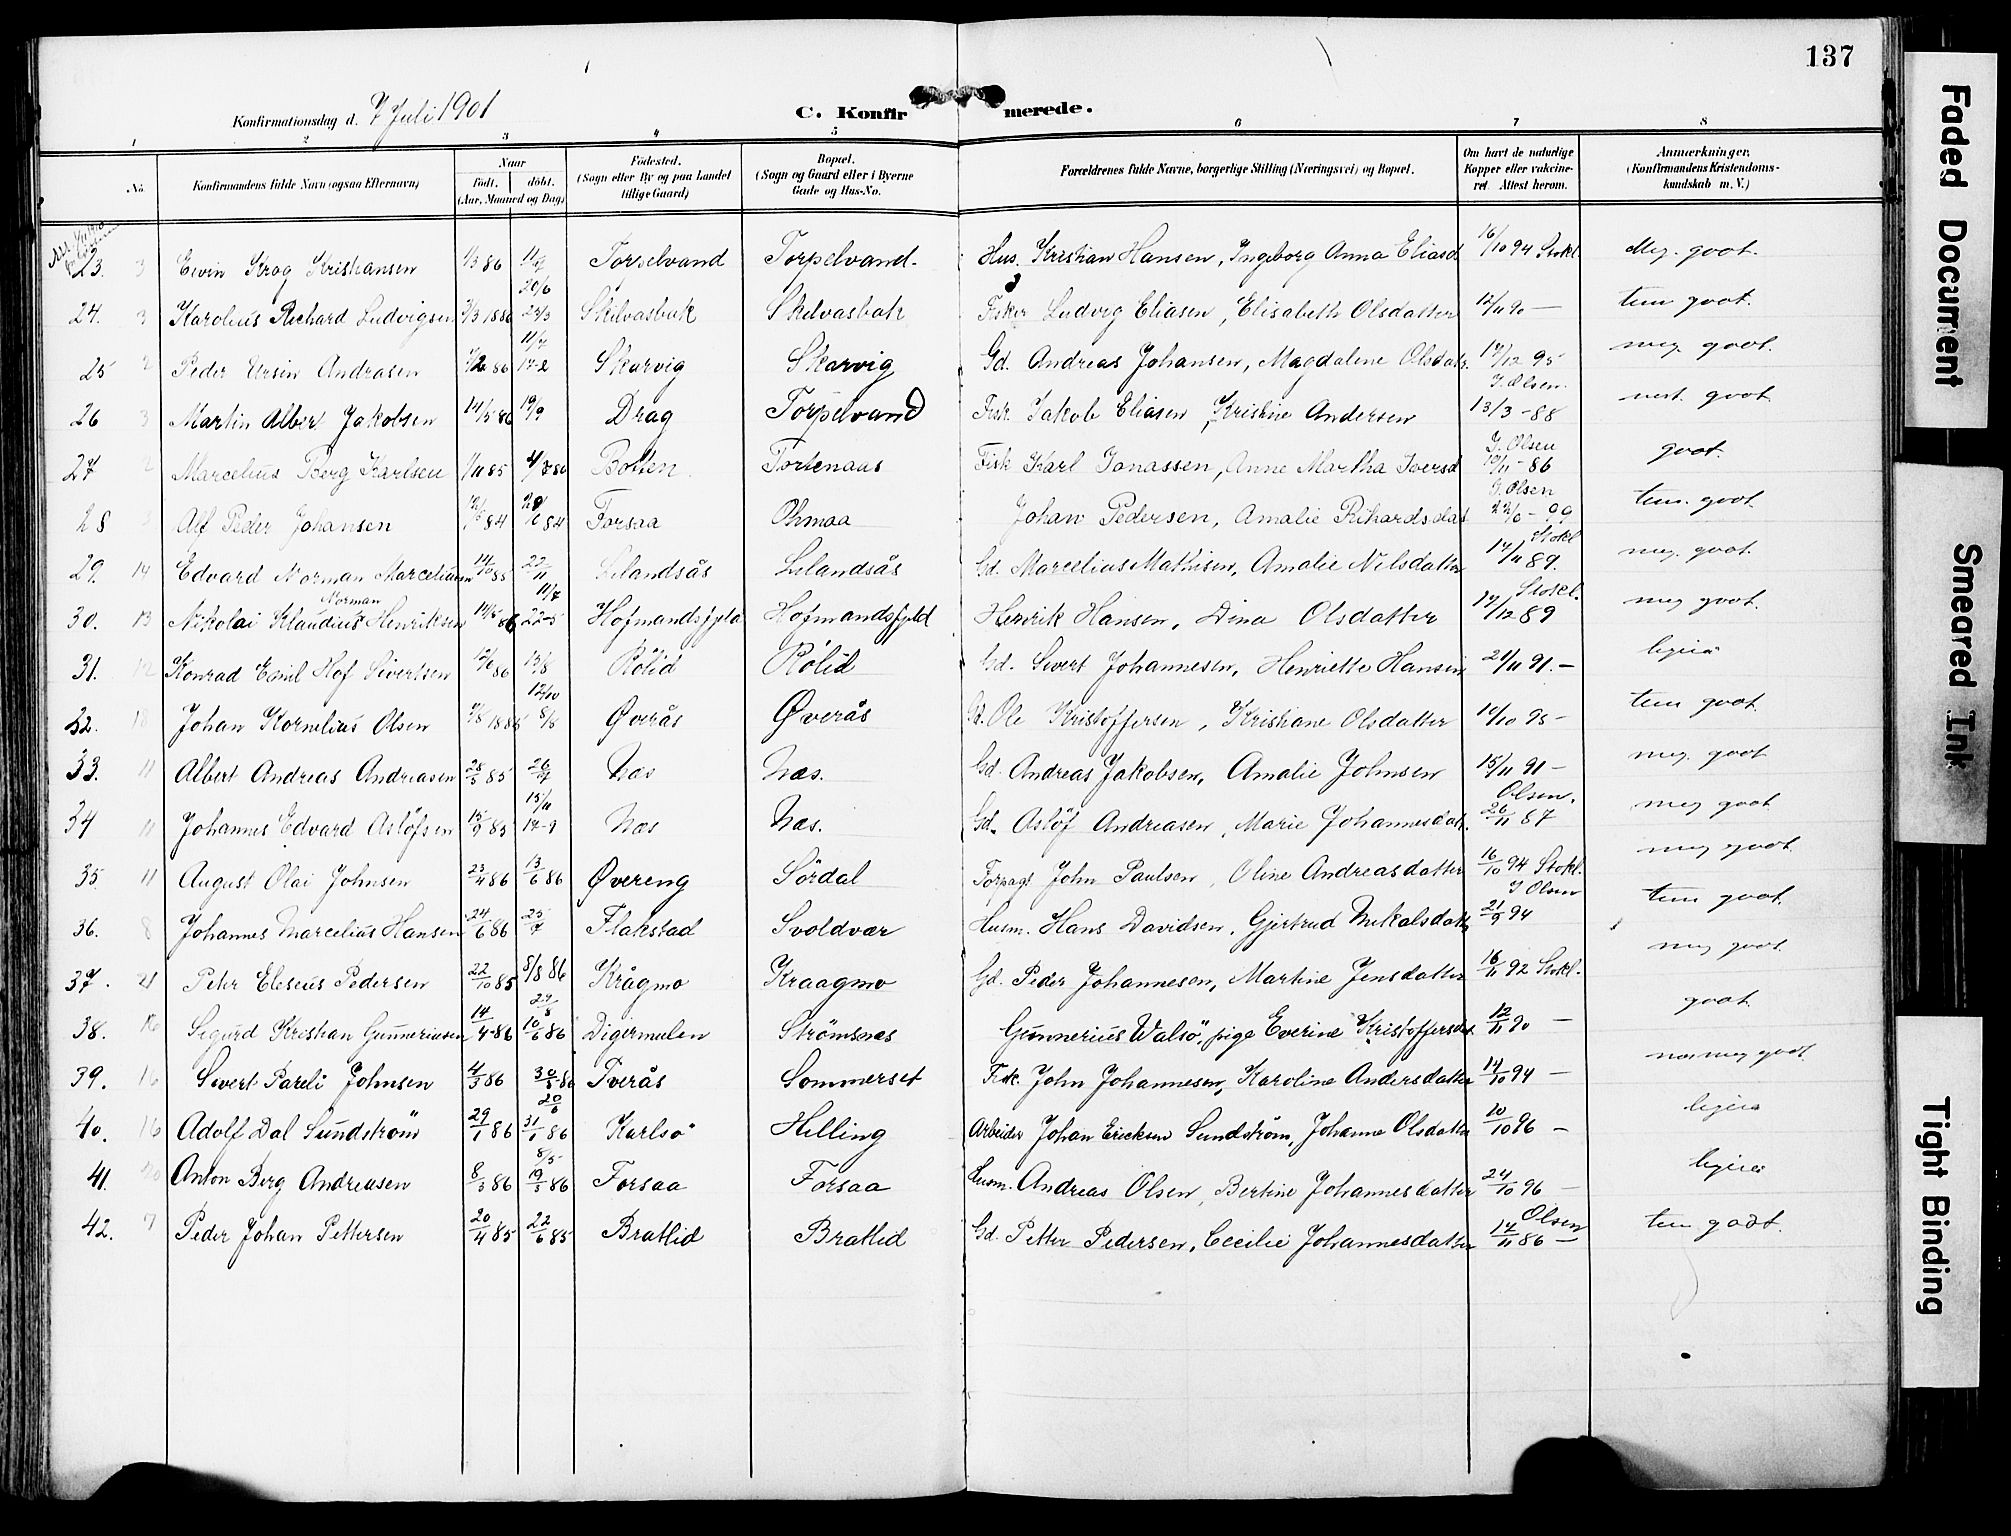 137
Konfirmationsdag d. 7 Juli 1901
C. Konfirmerede.
1 2 3 4 5 6 7 8
No. Konfirmandens fulde Navn (ogsaa Efternavn) Naar født. døbt. (Aar, Maaned og Dag) Fødested. (Sogn eller By og paa Landet tillige Gaard) Bopæl. (Sogn og Gaard eller i Byerne Gade og Hus-No. Forældrenes fulde Navne, borgerlige Stilling (Næringsvei) og Bopæl. Om havt de naturlige Kopper eller vakcineret. Attest herom. Anmærkninger. (Konfirmandens Kristendomskundskab m. V.)
23. 3 Ervin Krog Kristiansen 1/3 86 11/7 Torpelvand Torpelvand. Hus. Kristian Hansen, Ingeborg Anna Eliasd 16/10 94 Stokl. Meg. godt.
24. 3 Karolius Richard Ludvigsen 3/3 1886 20/6 23/3 Skilvasbak Skilvasbak Fisker Ludvig Eliasen, Elisabeth Olsdatter 12/11 90 — tem godt.
25 2 Peder Ursin Andrasen 7/2 86 11/7 17-2 Skarvig Skarvig Gd. Andreas Johansen, Magdalene Olsdatr. 17/12 95 meg. godt.
26 3 Martin Albert Jakobsen 14/5 86 19/9 Drag Torpelvand Fisk. Jakob Eliasen, Kristine Andersen J. Olsen 13/3-88 godt.
27 2 Marcelius Berg Karlsen 1/11 85 Botten. Tortenaus Fisk Karl Jonassen, Anne Martha Iversd J. Olsen 10/11-86 godt.
28 3 Alf Peder Johansen 84 84 Forsaa Ohmaa Johan Pedersen, Amalie Rikardsdat J. Olsen 22/6-99 tem. godt.
29. 14 Edvard Norman Marceliusen 14/10 85 22/11 Lilandsås Lilandsås Gd. Marcelius Mathisen, Amalie Nilsdatter Stokl 17/11 89. meg. godt.
30. 13 Nikolai Klaudius Norman Henriksen 14/5 86 11/7 22-5 Hofmandsfjeld Hofmandsfjeld Henrik Hansen, Dina Olsdatter Stokl. 17/12 89 meg godt.
31. 12 Konrad Emil Hof Sivertsen 12/6 86 13/8 Rölid Rölid Gd. Sivert Johannesen, Henriette Hansen 21/11 91. —
32. 18 Johan Kornelius Olsen 7/8 1885 12/10 8/8 Øverås Øverås Gd. Ole Kristoffersen, Kristiane Olsdatter 10/10 95 — tem godt.
33. 11 Albert Andreas Andreasen 28/5 85 26/7 Næs Næs. Gd. Andreas Jakobsen, Amalie Johnsen 15/11 91 — meg. godt
34 11 Johannes Edvard Aslöfsen 15/9 85 15/11 17-9 Næs Næs. Gd. Aslöf Andreasen, Marie Johannesdatr. Olsen. 26/11 87 meg godt
35 11 August Olai Johnsen 23/4 86 13/6 86 Øvereng Sördal Forpagt John Paulsen, Oline Andreasdatter 16/10 94 Stokl. meg godt.
36. 8 Johannes Marcelius Hansen 24/6 86 25/7 Flakstad Svoldvær Husm. Hans Davidsen, Gjertrud Mikalsdatr J Olsen 21/9 94 tem godt.
37. 21 Petter Eleseus Pedersen 22/10 85 8/8 86 Krågmo Kraagmo Gd. Peder Johannesen, Martine Jensdatter 16/11 92 Stokl. meg godt
38. 16 Sigurd Kristian Gunneriusen 14/4-86 10/6 86 Digermulen Strömsnes Gunnerius Walsö, pige Everine Kristoffersdat. 12/11 90 — godt
39. 16 Sivert Pareli Johnsen 4/3 86 30/5 86 Tverås Sommerset Fisk. John Johannesen, Karoline Andersdatter 14/10 94 — meg godt
40. 16 Adolf Dal Sundström 29/1 86 20/6 31/1 86 Karlsö Helling Arbeider Johan Ericksen Sundström, Johanna Olsdatter 10/10 96 —
41. 20 Anton Berg Andreasen 8/3 86 8/5 19/3 86 Forsaa Forsaa Husm. Andreas Olsen, Bertine Johannesdatter 24/10 96 —
42. 7 Peder Johan Pettersen 20/4 85 22/6 85 Bratlid Bratlid Gd. Petter Pedersen, Cecilie Johannesdatter Olsen 17/11 86 — tem godt.
Faded Document
Smeared Ink
Tight Binding